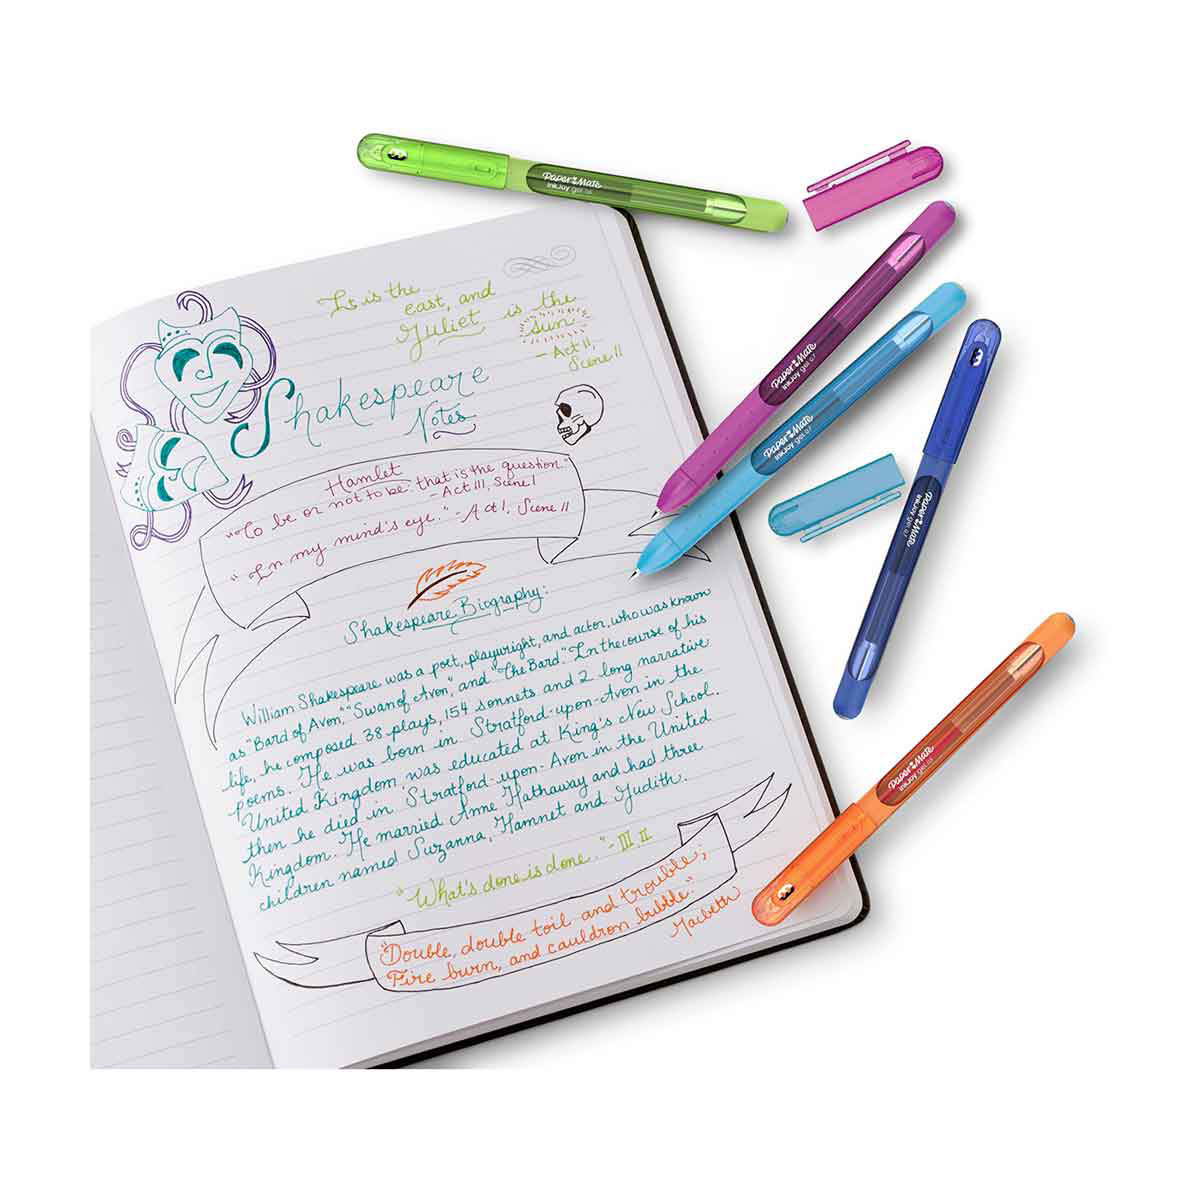 It is the
east, and
Juliet is the
sun
- Act II,
Scene II
Shakespeare
Notes
Hamlet
"To be or not to be: that is the question."
- Act III, Scene I
"In my mind's eye." - Act I, Scene II
Shakespeare Biography:
William Shakespeare was a poet, playwright, and actor, who was known
as "Bard of Avon," "Swan of Avon", and "The Bard." In the course of his
life, he composed 38 plays, 154 sonnets and 2 long narrative
poems. He was born in Stratford-upon-Avon in the
United Kingdom, was educated at King's New School.
then he died in Stratford-upon-Avon in the United
Kingdom. He married Anne Hathaway and had three
children named Suzanna, Hamnet and Judith.
"What's done is done." - III, II
"Double, double toil and trouble;
Fire burn, and cauldron bubble."
Macbeth
Paper Mate
InkJoy gel
Paper Mate
InkJoy gel 0.7
Paper Mate
InkJoy gel 0.7
Paper Mate
InkJoy gel 0.7
Paper Mate
InkJoy gel